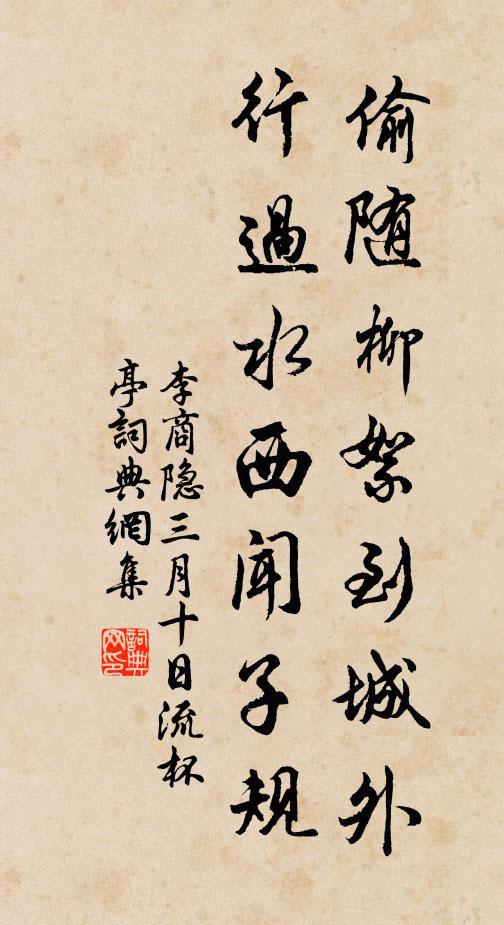 偷随柳絮到城外
行過水西闻子規
李商隐三月十日流杯
亭詞典網集
詞典网印